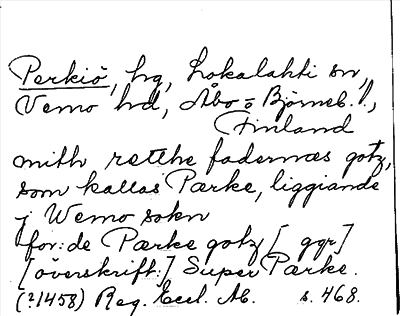 Perkiö, hg, Lokalahti sn,
Vemo hd, Åbo o Björneb. l.,
Finland
mith retthe fadernæs gotz,
som kallas Pærke, liggiande
j Wemo sokn
for:de Pærke gotz [ ggr]
[överskrift:] Super Pærke.
(?1458) Reg. Eccl. Ab. s. 468.